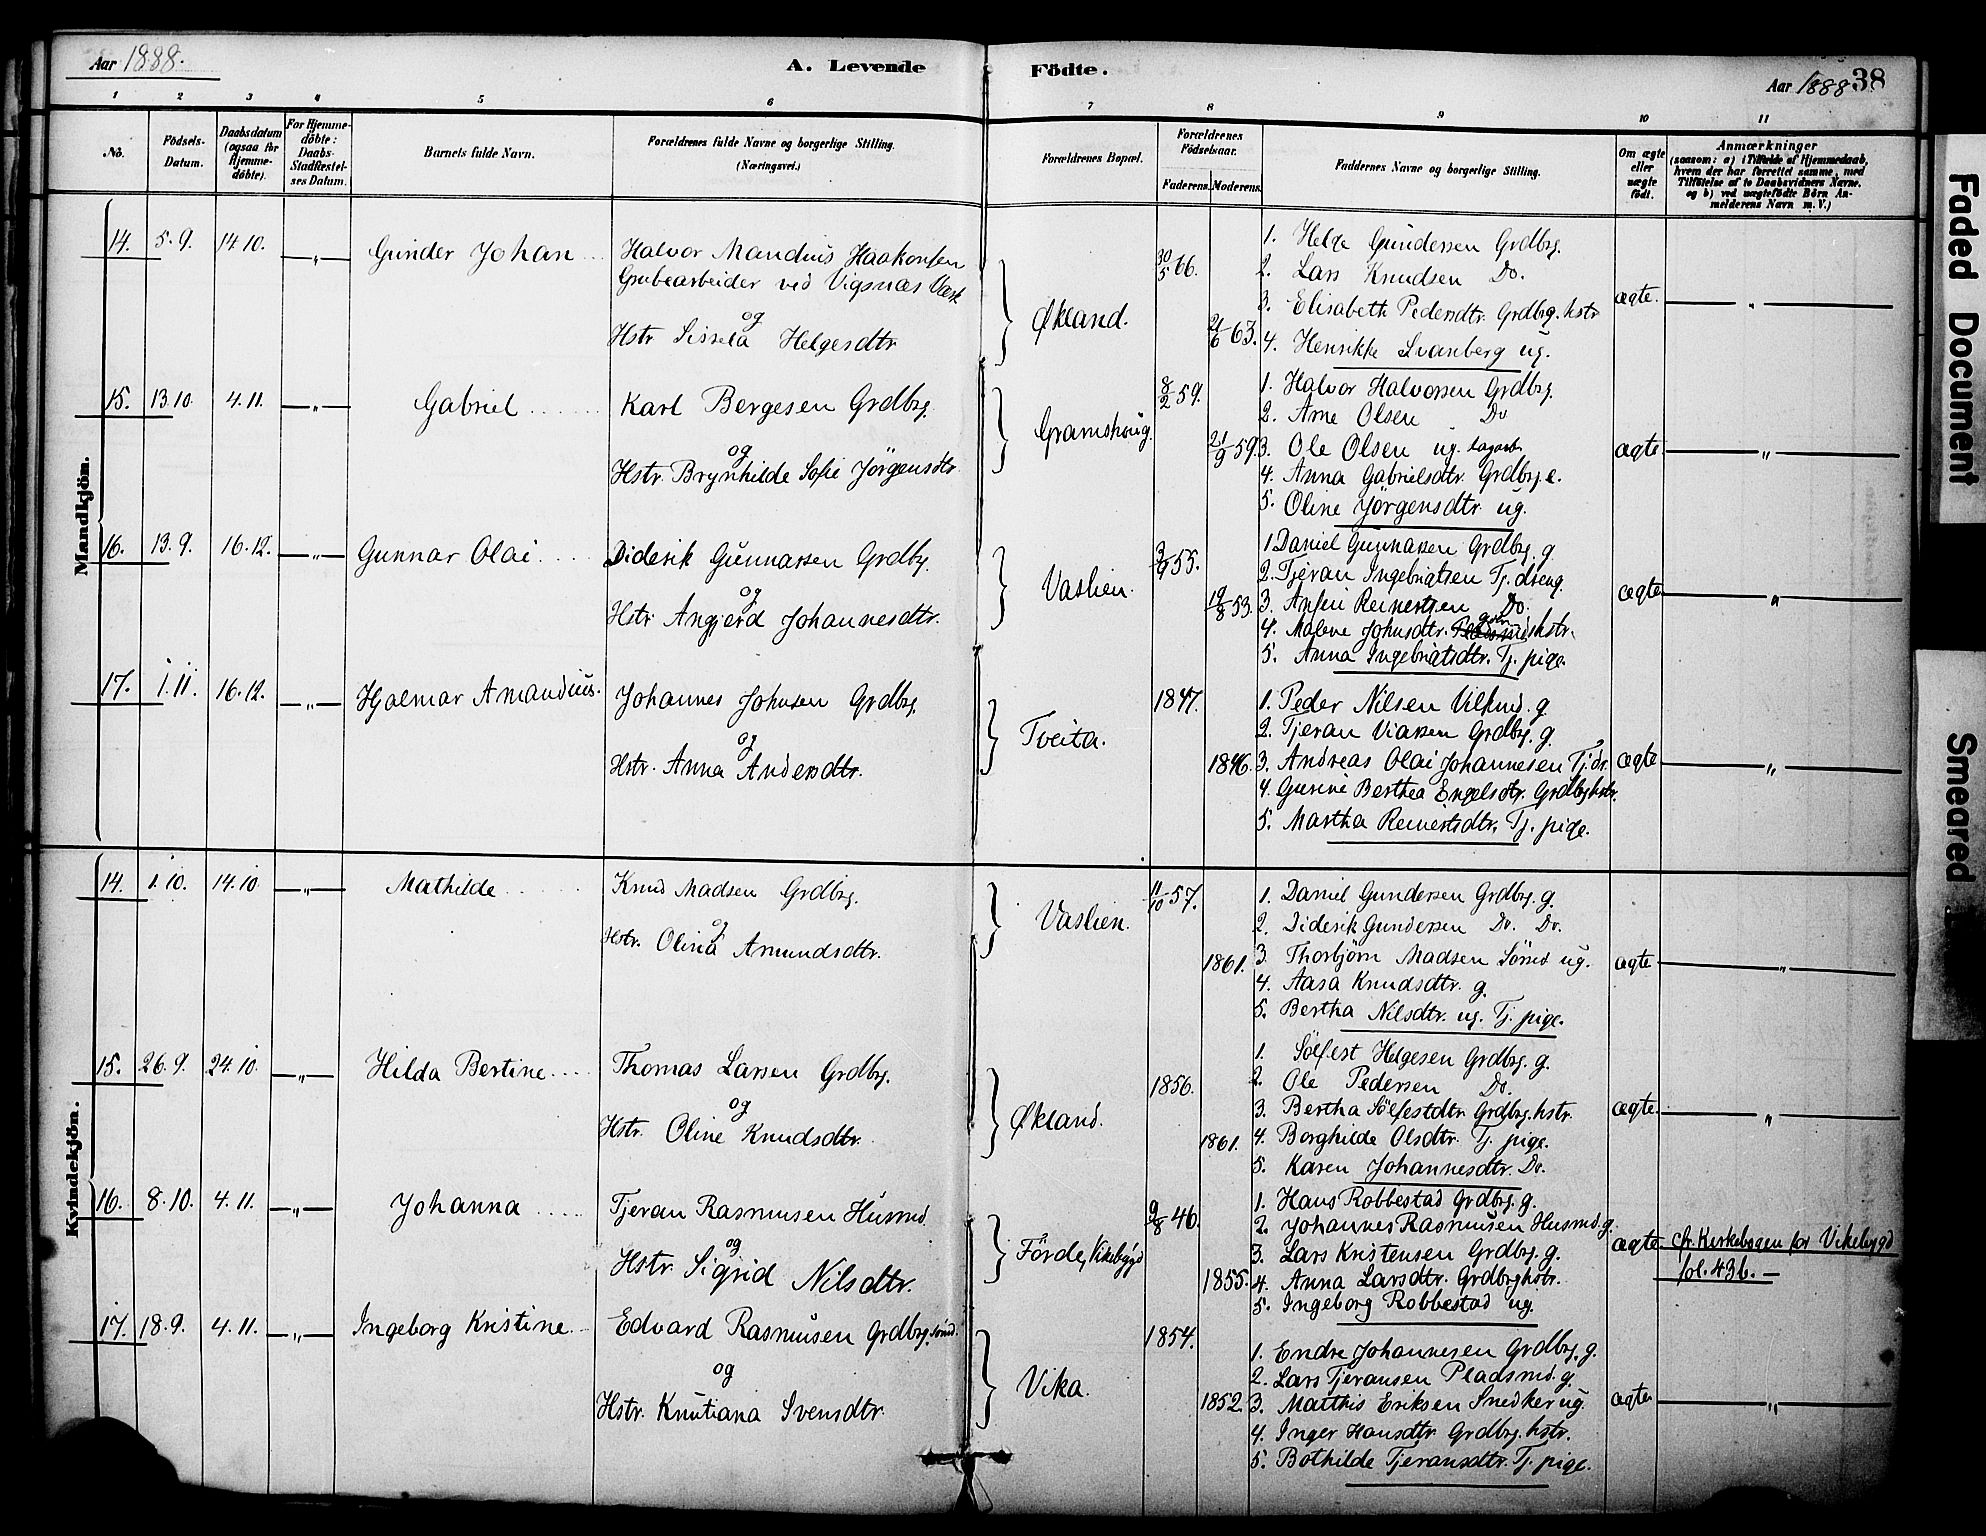 Aar 1888.
A. Levende Födte.
Aar 1888 38
1 2 3 4 5 6 7 8 9 10 11
No.
Födsels-
Datum.
Daabsdatum
(ogsaa for
Hjemme-
döbte).
For Hjemme-
döbte:
Daabs-
Stadfæstel-
ses Datum.
Barnets fulde Navn.
Forældrenes fulde Navne og borgerlige Stilling.
(Næringsvei.)
Forældrenes Bopæl.
Forældrenes
Födselsaar.
Faderens. Moderens.
Faddernes Navne og borgerlige Stilling.
Om ægte
eller
uægte
födt.
Anmærkninger
(saasom: a) i Tilfælde af Hjemmedaab,
hvem der har forrettet samme, med
Tilföielse af to Daabsvidners Navne.
og b) ved uægtefödte Börn An-
melderens Navn m. V.)
Mandkjön.
14. 5.9. 14.10. — „ — Gunder Johan
Halvor Mandius Haakonsen
Grubearbeider ved Vigsnæs Værk
og
Hstr. Sissela Helgesdtr.
Økland.
30/5 66.
21/6 63.
1. Helge Gundersen Grdbrg.
2. Lars Knudsen Do.
3. Elisabeth Pedersdtr. Grdbrg. hstr
4. Henrikke Svanberg ug.
ægte. — „ —
15. 13.10. 4.11. — „ — Gabriel
Karl Bergesen Grdbrg.
og
Hstr. Brynhilde Sofie Jörgensdtr.
Gramshoug.
8/2 59.
21/9 59.
1. Halvor Halvorsen Grdbrg.
2. Arne Olsen Do
3. Ole Olsen ug. dagarb.
4. Anna Gabrielsdtr. Grdbrg. e.
5. Oline Jörgensdtr. ug.
ægte — „ —
16. 13.9. 16.12. — „ — Gunnar Olai
Diderik Gunnarsen Grdbrg.
og
Hstr. Angjerd Johannesdtr.
Vaslien.
3/9 55.
19/8 53.
1. Daniel Gunnarsen Grdbrg. g.
2. Tjeran Ingebrigtsen Tj. dreng.
3. Ansen Reinertsen Do.
4. Malene Johnsdtr. hstr.
5. Anna Ingebrigtsdtr. Tj. pige.
ægte — „ —
17. 1.11. 16.12. — „ — Hjalmar Amandius.
Johannes Johnsen Grdbrg.
og
Hstr. Anna Andersdtr.
Tveita.
1847.
1846.
1. Peder Nilsen g.
2. Tjeran Grdbrg. g.
3. Andreas Olai Johannesen Tj. dr.
4. Gurine Berthea Engelsdtr. Grdbrg hstr.
5. Martha Reinertsdtr. Tj. pige.
ægte — „ —
Kvindekjön.
14. 1.10. 14.10 — „ — Mathilde
Knud Madsen Grdbrg.
og
Hstr. Olina Amundsdtr.
Vaslien.
11/10 57.
1861.
1. Daniel Gundersen Grdbrg. g.
2. Diderik Gundersen Do. Do.
3. Thorbjörn Madsen Sömd ug.
4. Aasa Knudsdtr. g.
5. Bertha Nilsdtr. ug. Tj. pige.
ægte — „ —
15. 26.9. 24.10. — „ — Hilda Bertine
Thomas Larsen Grdbrg.
og
Hstr. Oline Knudsdtr.
Økland.
1856.
1861.
1. Sölfest Helgesen Grdbrg. g.
2. Ole Pedersen Do.
3. Bertha Sölfestdtr. Grdbrg. hstr.
4. Borghilde Olsdtr. Tj. pige.
5. Karen Johannesdtr. Do.
ægte. — „ —
16. 8.10. 4.11. — „ — Johanna
Tjeran Rasmusen Husmd.
og
Hstr. Sigrid Nilsdtr.
Förde, Vikebygd
9/8 46.
1855.
1. Hans Robbestad Grdbrg. g.
2. Johannes Rasmusen Husmd. g.
3. Lars Kristensen Grdbrg. g.
4. Anna Larsdtr. Grdbrg hstr.
5. Ingeborg Robbestad ug.
ægte. cfr. Kirkebogen for Vikebygd
fol. 43b. —
17. 18.9. 4.11. — „ — Ingeborg Kristine
Edvard Rasmusen Grdbrg. sömd.
og
Hstr. Knutiana Svensdtr.
Vika.
1854.
1852.
1. Endre Johannesen Grdbrg. g.
2. Lars Tjeransen Pladsmd. g.
3. Matthis Eriksen Snedker ug.
4. Inger Hansdtr. Grdbrg. hstr.
5. Bothilde Tjeransdtr. Tj. pige.
ægte — „ —
Faded Document
Smeared